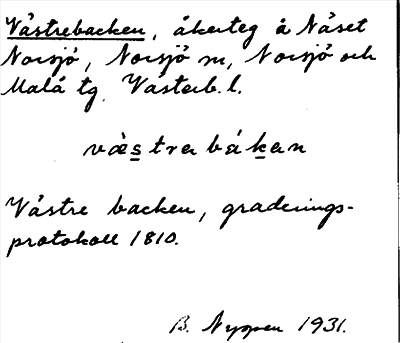 Västrebacken, åkerteg å Näset
Norsjö, Norsjö sn, Norsjö och
Malå tg. Västerb. l.
væ̀strərbákən
Västre backen, graderings-
protokoll 1810.
B. Nyppen 1931.